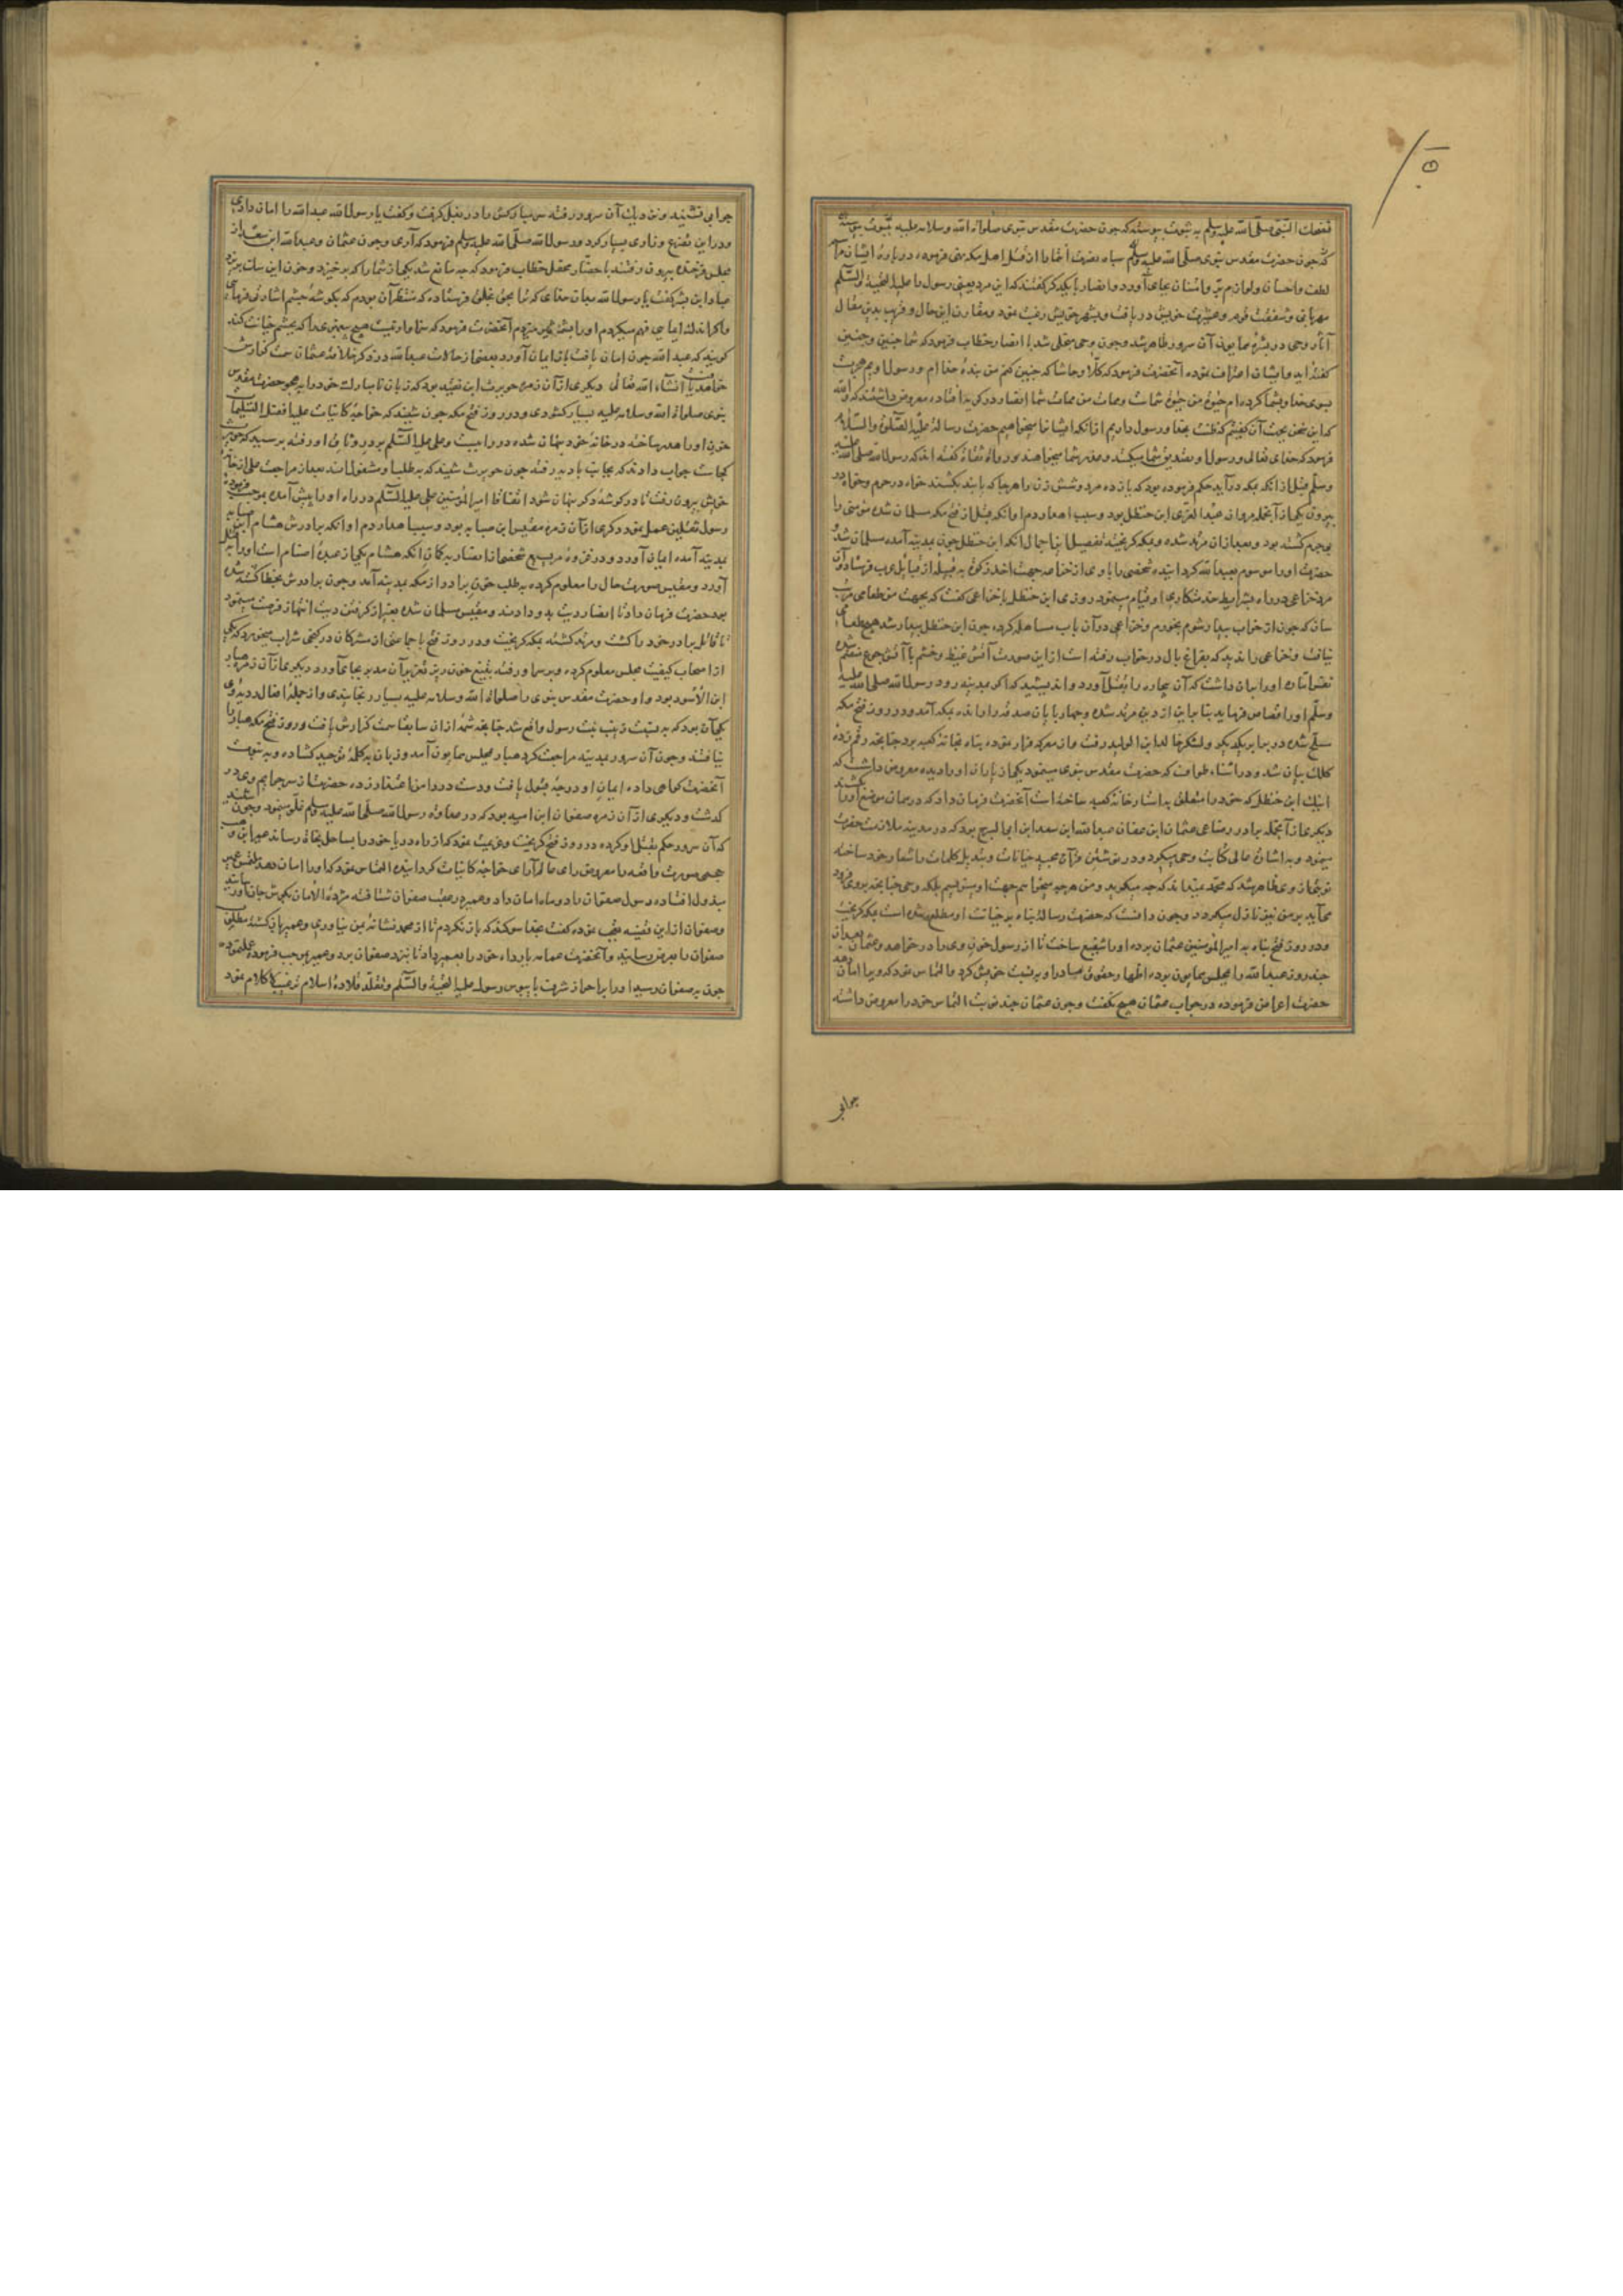 نفحات النبی صلی الله علیه وسلم به ثبوت پیوسته که چون حضرت مقدس نبوی صلوات الله وسلامه علیه
که چون حضرت مقدس نبوی صلی الله علیه وسلم سپاه نصرت را از قتل اهل مکه نهی فرموده درباره ایشان
لطف واحسان ولوازم وامتنان بجای آورد وانصار با یکدیکر کفتند که این مرد یعنی رسول را علیه التحیة والسلم
مهربانی وشفقت وعشیرت خویش دریافت وبشهر خویش رغبت نمود ومقارن این حال
آثار وحی در بشره همایون آن سرور ظاهر شد وچون وحی منجلی شد با انصار خطاب فرمود که شما چنین وچنین
کفته اید وایشان اعتراف نموده آنحضرت فرمود که کلا وحاشا که چنین کنم من بنده خدا ام ورسول او
بسوی خدا وشما کرده ام شماست وممات من ممات شما انصار در کریه افتاده معروض داشتند که والله
که این سخن بجهت آن کفتیم که بخدا ورسول داریم حضرت رساله علیه الصلوة والسلام
فرمود که خدای تعالی ورسول او تصدیق شما میکنند وعذر شما که رسول الله صلی الله علیه
وسلم قبل از آنکه بمکه درآید حکم فرموده بود که یازده مرد وشش زن را هر جا که یابند بکشند خواه در حرم وخواه در
بیرون یکی از آنجمله عبد العزی ابن حنظل بود وسبب اهدار دم او آنکه قبل از فتح مکه مسلمان شده مؤمنی را
کشته بود وبعد از آن مرتد شده وبمکه کریخته تفصیل این اجمال آنکه ابن حنظل چون بمدینه آمده مسلمان شد
حضرت او را موسوم بعبد الله کردانیده شخصی را با وی از خزاعه جهت اخذ زکوة به قبیله از قبایل عرب فرستاد وآن
مرد خزاعی در راه بشرایط خدمتکاری او قیام مینمود روزی ابن حنظل با خزاعی کفت که بجهت من طعامی مرتب
سان که چون از خواب بیدار شوم بخورم وخزاعی در آن باب مساهله کرده چون ابن حنظل بیدار شد هیچ طعامی
نیافت وخزاعی را دید که بفراغ بال در خواب رفته است از این صورت آتش غیظ وخشم با آتش جوع
او را بران داشت که آن بیچاره را بقتل آورد واندیشید که اگر بمدینه رود رسول الله صلی الله علیه
وسلم او را قصاص فرماید بنا براین از دین مرتد شده وچهارپایان صدقه را رانده بمکه آمد ودر روز فتح مکه
مسلح شده در برابر یکدیکر ولشکر خالد ابن الولید رفت واز معرکه فرار نموده پناه بخانه کعبه برد چنانچه رقم زده
کلک بیان شد ودر اثناء طواف که حضرت مقدس نبوی مینمود یکی از یاران او را دیده معروض داشت که
اینک ابن حنظل که خود را متعلق باستار خانه کعبه ساخته است آنحضرت فرمان داد که در همان موضع او را بکشند
دیکری از آنجمله برادر رضاعی عثمان ابن عفان عبد الله ابن سعد ابن ابی السرح بود که در مدینه ملازمت حضرت
مینمود وبه اشاره عالی کتابت وحی میکرد ودر نوشتن قرآن مجید خیانات وتبدیل کلمات را شعار خود ساخته
ظاهر شد که محمد نمیداند که چه میکوید ومن هر چه میخواهم جهت او مینویسم بلکه وحی چنانچه بر وی فرود
می آید بر من نیز نازل میکردد وچون دانست که حضرت رسالت پناه بر خیانت او مطلع شده است بمکه کریخت
ودر روز فتح پناه به امیر المؤمنین عثمان برده او را شفیع ساخت تا از رسول خون وی را درخواهد وعثمان بعد از
چند روز عبد الله را بمجلس همایون برده اظهار حقوق ونسبت خویش کرد والتماس نمود که وی را امان دهد
حضرت اعراض فرموده در جواب عثمان هیچ نکفت وچون عثمان چند نوبت التماس خود را معروض داشته
جوابی
جوابی نشنید آن سرور رفته سر مبارکش را در بغل کرفت وکفت یا رسول الله عبد الله را امان دادی
ودر این تضرع وزاری بسیار کرد ورسول الله صلی الله علیه وسلم فرمود که آری وچون عثمان وعبد الله ابن سعد از
مجلس بیرون رفتند با حضار محفل خطاب فرمود که چه مانع شد یکی از شما را که برخیزد وخون این بریزد
عباد ابن بشر کفت یا رسول الله بدان خدای که ترا بحق بخلق فرستاده که منتظر آن بودم که بکوشه چشم اشارتی فرمایی
میکردم او را آنحضرت فرمود که سزاوار نیست هیچ پیغمبری را که بچشم خیانت کند
کویند که عبد الله چون امان یافت باز ایمان آورد وبعضی از حالات عبد الله در ذکر خلافت عثمان سمت کزارش
خواهد یافت انشاء الله تعالی دیکری از آن زمره حویرث ابن نقید بود که زبان نامبارک خود را به هجو حضرت مقدس
نبوی صلوات الله وسلامه علیه بسیار کشودی ودر روز فتح مکه چون شنید که خواجه کاینات علیه افضل التسلیمات
خون او را هدر ساخته در خانه خود پنهان شده در را ببست وعلی علیه السلم بر در او رفته پرسید که حویرث
کجاست جواب دادند که بجانب بادیه رفته چون حویرث شنید که به طلب او مشغول اند بعد از مراجعت علی از خانه
خویش بیرون رفت تا در کوشه دکر پنهان شود اتفاقا امیر المؤمنین علی علیه السلم در راه او را پیش آمده بموجب فرموده
رسول ثقلین عمل نمود دیکری از آن زمره مقیس ابن صبابه بود وسبب اهدار دم او آنکه برادرش هشام ابن صبابه
بمدینه آمده ایمان آورد ودر غزوه مریسیع شخصی از انصار به کمان آنکه هشام یکی از عبده اصنام است او را بقتل
آورد ومقیس صورت حال را معلوم کرده به طلب خون برادر از مکه بمدینه آمد وچون برادرش بخطا کشته شده
بود حضرت فرمان داد تا انصار دیت بدو دادند ومقیس مسلمان شده بعد از کرفتن دیت انتهاز فرصت مینمود
تا قاتل برادر خود را کشت ومرتد کشته بمکه کریخت ودر روز فتح با جماعتی از مشرکان در کنجی شراب میخورد که یکی
از اصحاب کیفیت مجلس معلوم کرده وبر سر او رفته بتیغ خون ریز بجای آورد دیکری از آن زمره هبار
ابن الاسود بود واو حضرت مقدس نبوی را صلوات الله وسلامه علیه بسیار رنجانیدی واز جمله افعال ردیه وی
یکی آن بود که به نسبت زینب بنت رسول واقع شد چنانچه شمه از آن سابقا سمت کزارش یافت وروز فتح مکه هبار را
نیافتند وچون آن سرور بمدینه مراجعت کرد هبار بمجلس همایون آمد وزبان به کلمه توحید کشاده وبه نبوت
آنحضرت کواهی داده ایمان او درجه قبول یافت ودست در دامن اعتذار زده حضرت از سر جرایم وی در
کذشت ودیکری از آن زمره صفوان ابن امیه بود که در معادات رسول الله صلی الله علیه وسلم غلو مینمود وچون شنید
که آن سرور حکم بقتل او کرده در روز فتح کریخت وعزیمت نمود که از راه دریا خود را بساحل نجات رساند عمیر ابن وهب
جمحی صورت واقعه را معروض رای عالم آرای خواجه کاینات کردانیده التماس نمود که او را امان دهد ملتمس عمیر
مبذول افتاده رسول صفوان را دو ماه امان داد وعمیر در عقب صفوان شتافته مژده الامان بکوش جان او رسانید
وصفوان از این قضیه تعجب نموده کفت بخدا سوکند که باز نکردم تا از محمد نشانه بمن نیاوری وعمیر باز کشته مطلوب
صفوان را بعرض رسانید وآنحضرت عمامه یا رداء خود را بعمیر داد تا نزد صفوان برد وعمیر بموجب فرموده عمل نموده
چون به صفوان رسید او را بر احراز شرف پای بوس رسول علیه التحیة والسلم وتقلد قلاده اسلام ترغیب کلام نمود